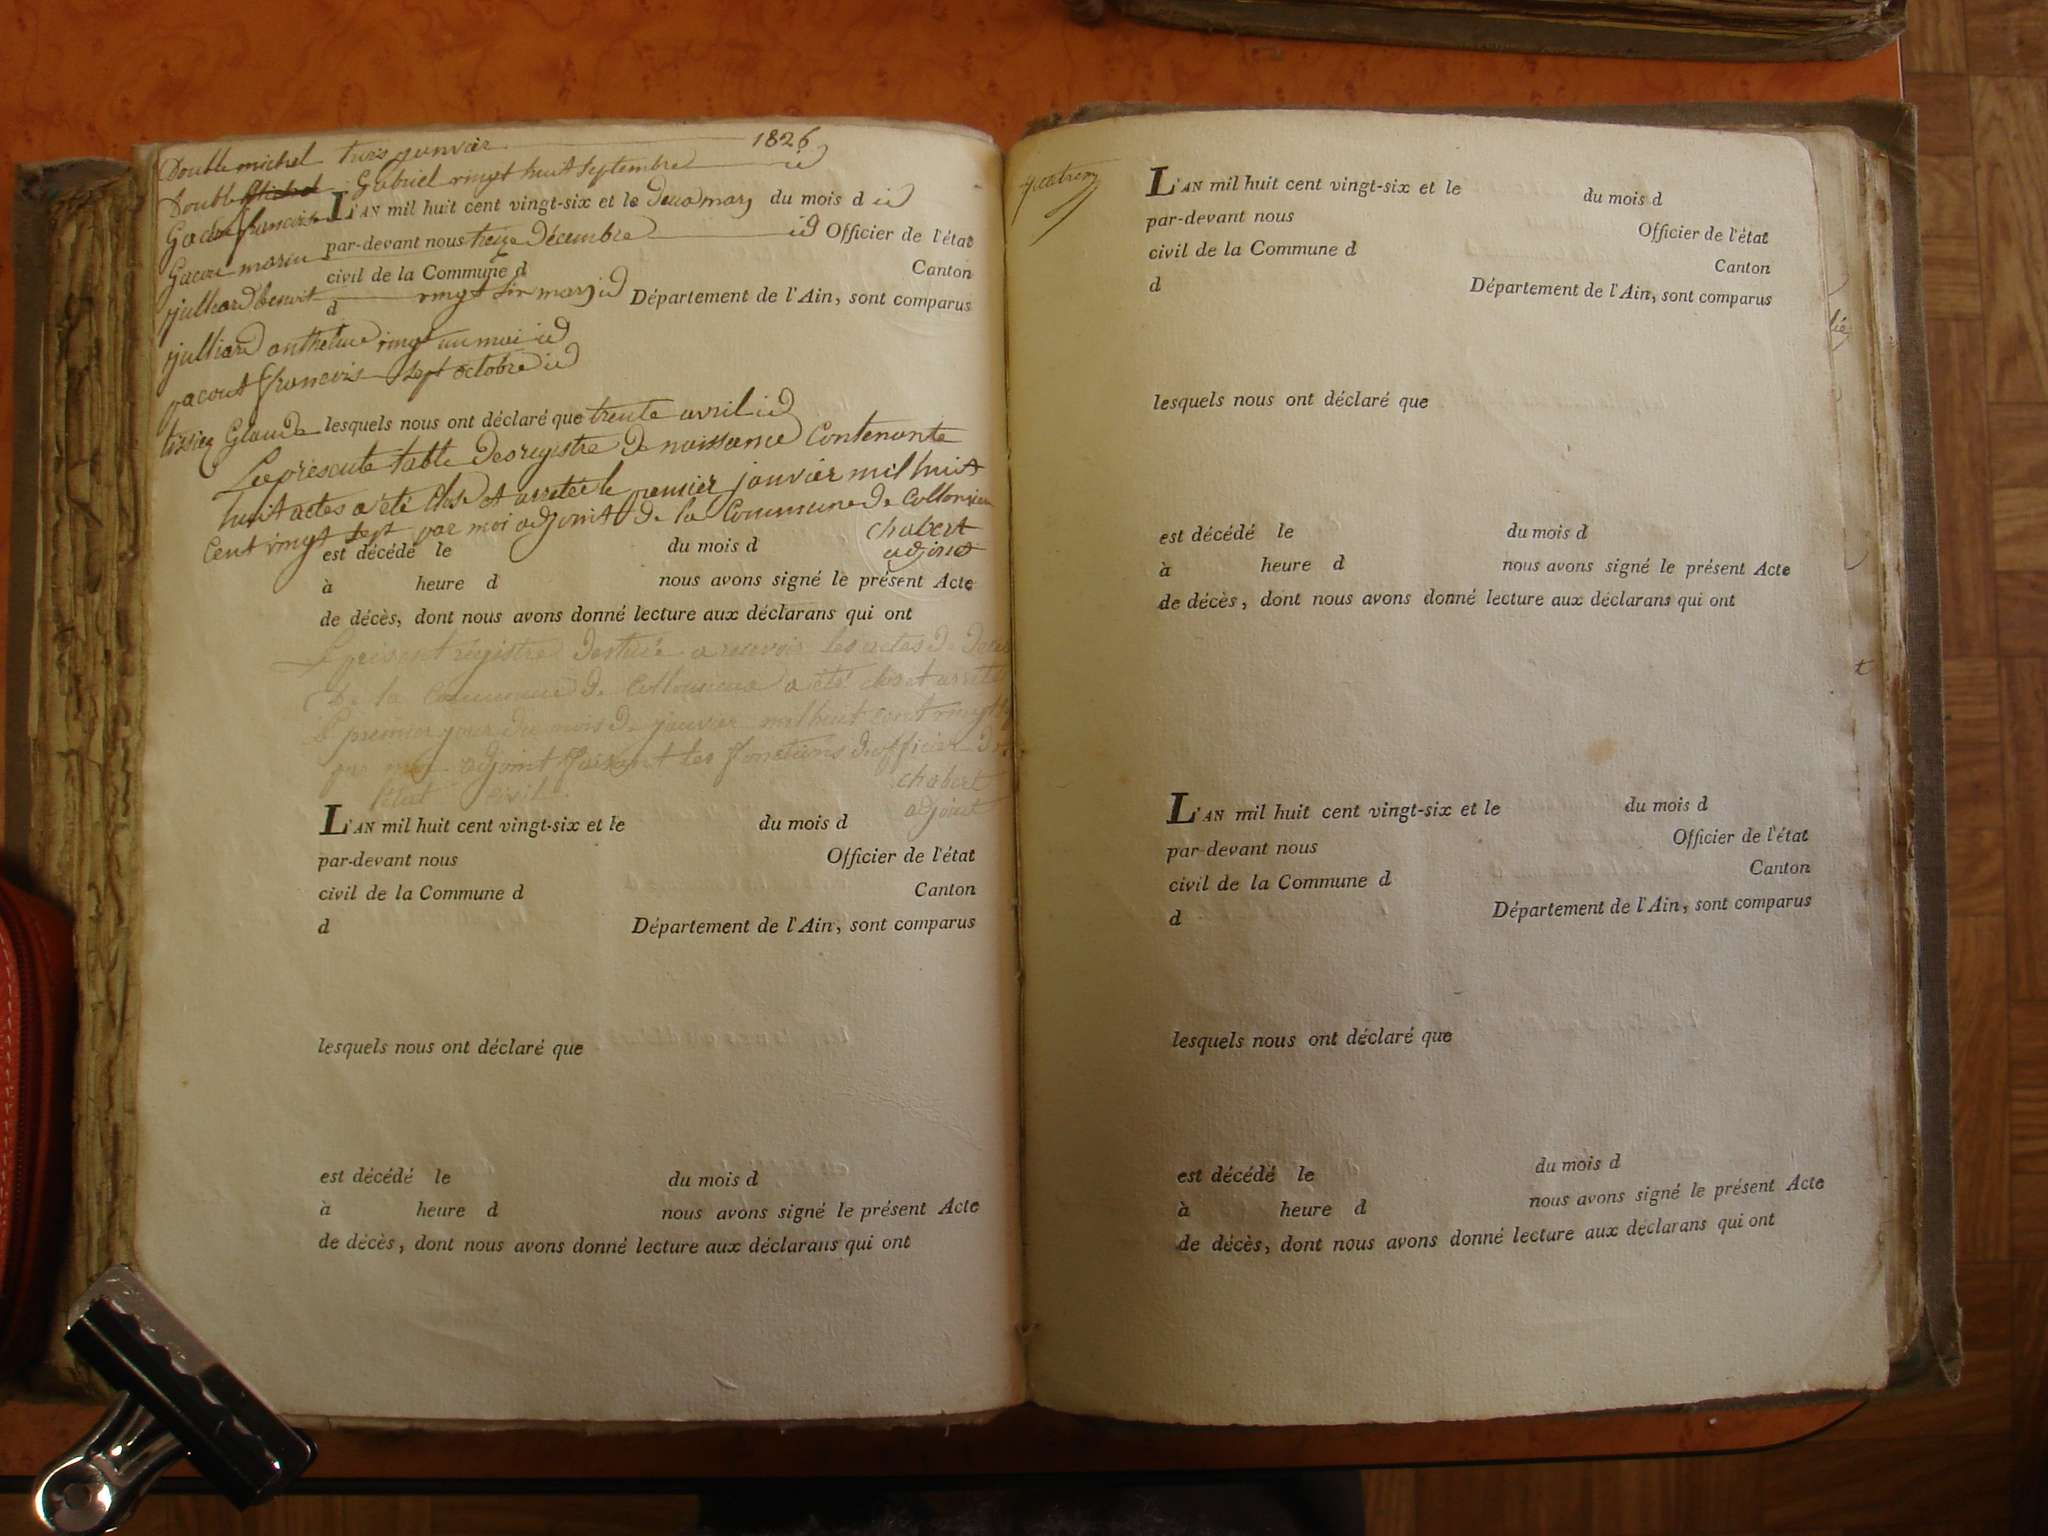 Double michel trois janvier 1826
Double Michel Gabriel vingt huit septembre id
Gacon francois
L'AN mil huit cent vingt-six et le deux mars du mois d id
Gacon marie
par-devant nous treize décembre id Officier de l'état
civil de la Commune d Canton
julliard benoit vingt six mars id
d Département de l'Ain, sont comparus
julliard anthelme vingt un mai id
pacout francois sept octobre id
tissier Glaude lesquels nous ont déclaré que trente avril id
Le présente table des registre de naissance Contenante
huit actes a été close et arretée le premier janvier mil huit
Cent vingt sept par moi adjoint de la Commune de Collonieu
chabert
adjoint
est décédé le du mois d
à heure d nous avons signé le présent Acte
de décès, dont nous avons donné lecture aux déclarans qui ont
Le présent régistre destiné a recevoir les actes de déces
De la Commune de Collonieux a été clos et arrêté
le premier jour du mois de janvier mil huit cent vingt
par moi adjoint faisant les fonctions d'officier de
l'état civil.
chabert
adjoint
L'AN mil huit cent vingt-six et le du mois d
par-devant nous Officier de l'état
civil de la Commune d Canton
d Département de l'Ain, sont comparus
lesquels nous ont déclaré que
est décédé le du mois d
à heure d nous avons signé le présent Acte
de décès, dont nous avons donné lecture aux déclarans qui ont
L'AN mil huit cent vingt-six et le du mois d
par-devant nous Officier de l'état
civil de la Commune d Canton
d Département de l'Ain, sont comparus
lesquels nous ont déclaré que
est décédé le du mois d
à heure d nous avons signé le présent Acte
de décès, dont nous avons donné lecture aux déclarans qui ont
L'AN mil huit cent vingt-six et le du mois d
par-devant nous Officier de l'état
civil de la Commune d Canton
d Département de l'Ain, sont comparus
lesquels nous ont déclaré que
est décédé le du mois d
à heure d nous avons signé le présent Acte
de décès, dont nous avons donné lecture aux déclarans qui ont